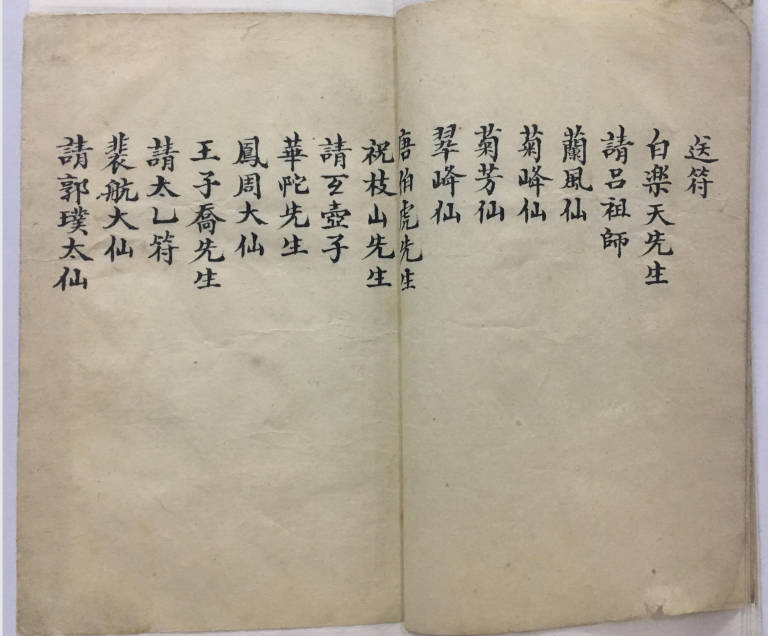 送符
白楽天先生
請呂祖師
蘭風仙
菊峰仙
菊芳仙
翠峰仙
唐伯虎先生
祝枝山先生
請互壺子
華陀先生
鳳周大仙
王子喬先生
請太乙符
裴航大仙
請郭璞大仙